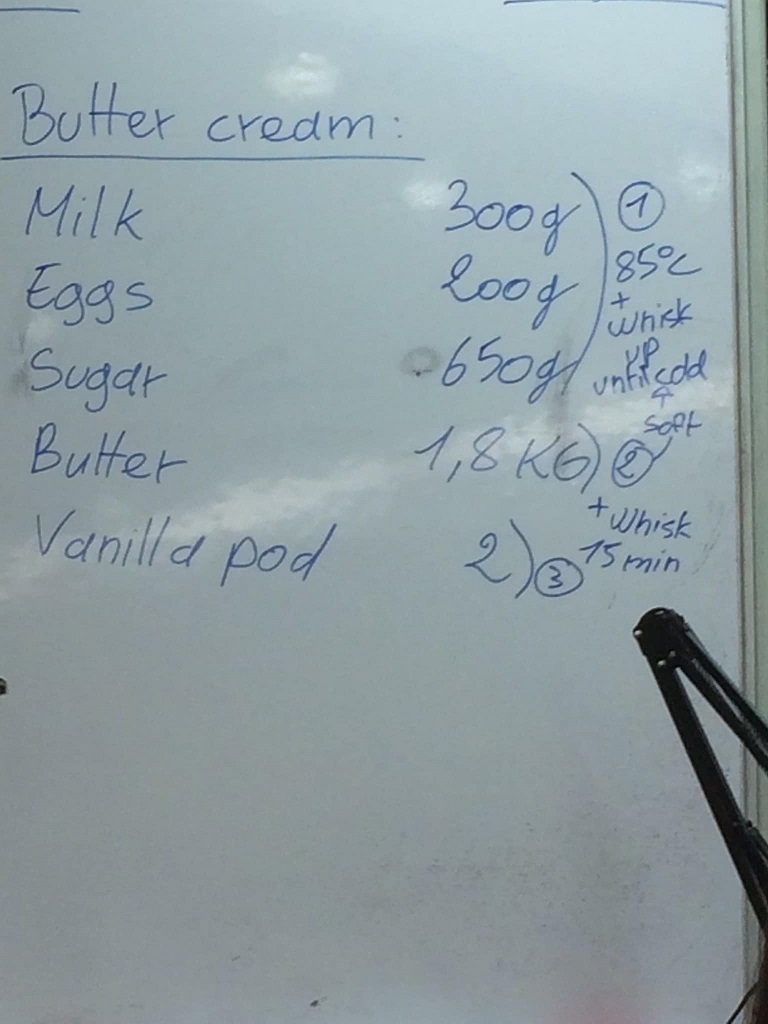 Butter cream:
Milk 300g ) ①
Eggs 200g 85°C
+
whisk
up
Sugar 650g until cold
soft
Butter 1,8 KG ) ②
+ whisk
Vanilla pod 2 ) ③ 15 min